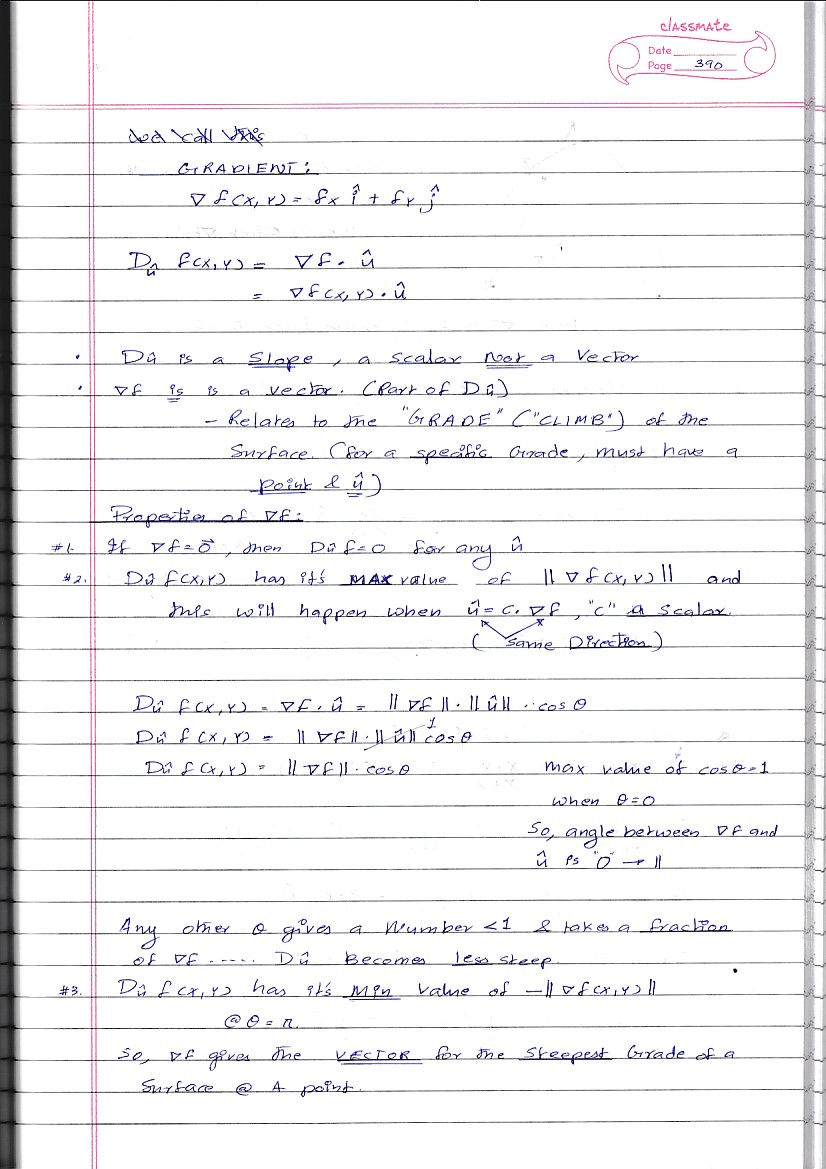 classmate
Date
Page 390
GRADIENT:
∇f(x,y) = fx î + fy ĵ
Dû f(x,y) = ∇f · û
= ∇f(x,y) · û
· Dû is a Slope, a scalar Not a Vector
· ∇f is is a vector. (Part of Dû)
- Relates to the "GRADE" ("CLIMB") of the
Surface. (for a specific Grade, must have a
point & û)
Properties of ∇f:
#1. If ∇f = 0⃗, then Dûf=0 for any û
#2. Dû f(x,y) has it's MAX value of ||∇f(x,y)|| and
this will happen when û = c. ∇f, "c" a scalar.
(Same Direction)
Dû f(x,y) = ∇f · û = ||∇f|| · ||û|| · cos θ
Dû f(x,y) = ||∇f|| · ||û|| 1 cos θ
Dû f(x,y) = ||∇f|| · cos θ max value of cos θ = 1
when θ=0
So, angle between ∇f and
û is "0" → ||
Any other θ gives a Number <1 & takes a fraction
of ∇f ..... Dû Becomes less steep.
#3. Dû f(x,y) has it's Min value of -||∇f(x,y)||
@ θ = π.
So, ∇f gives the VECTOR for the Steepest Grade of a
Surface @ A point.